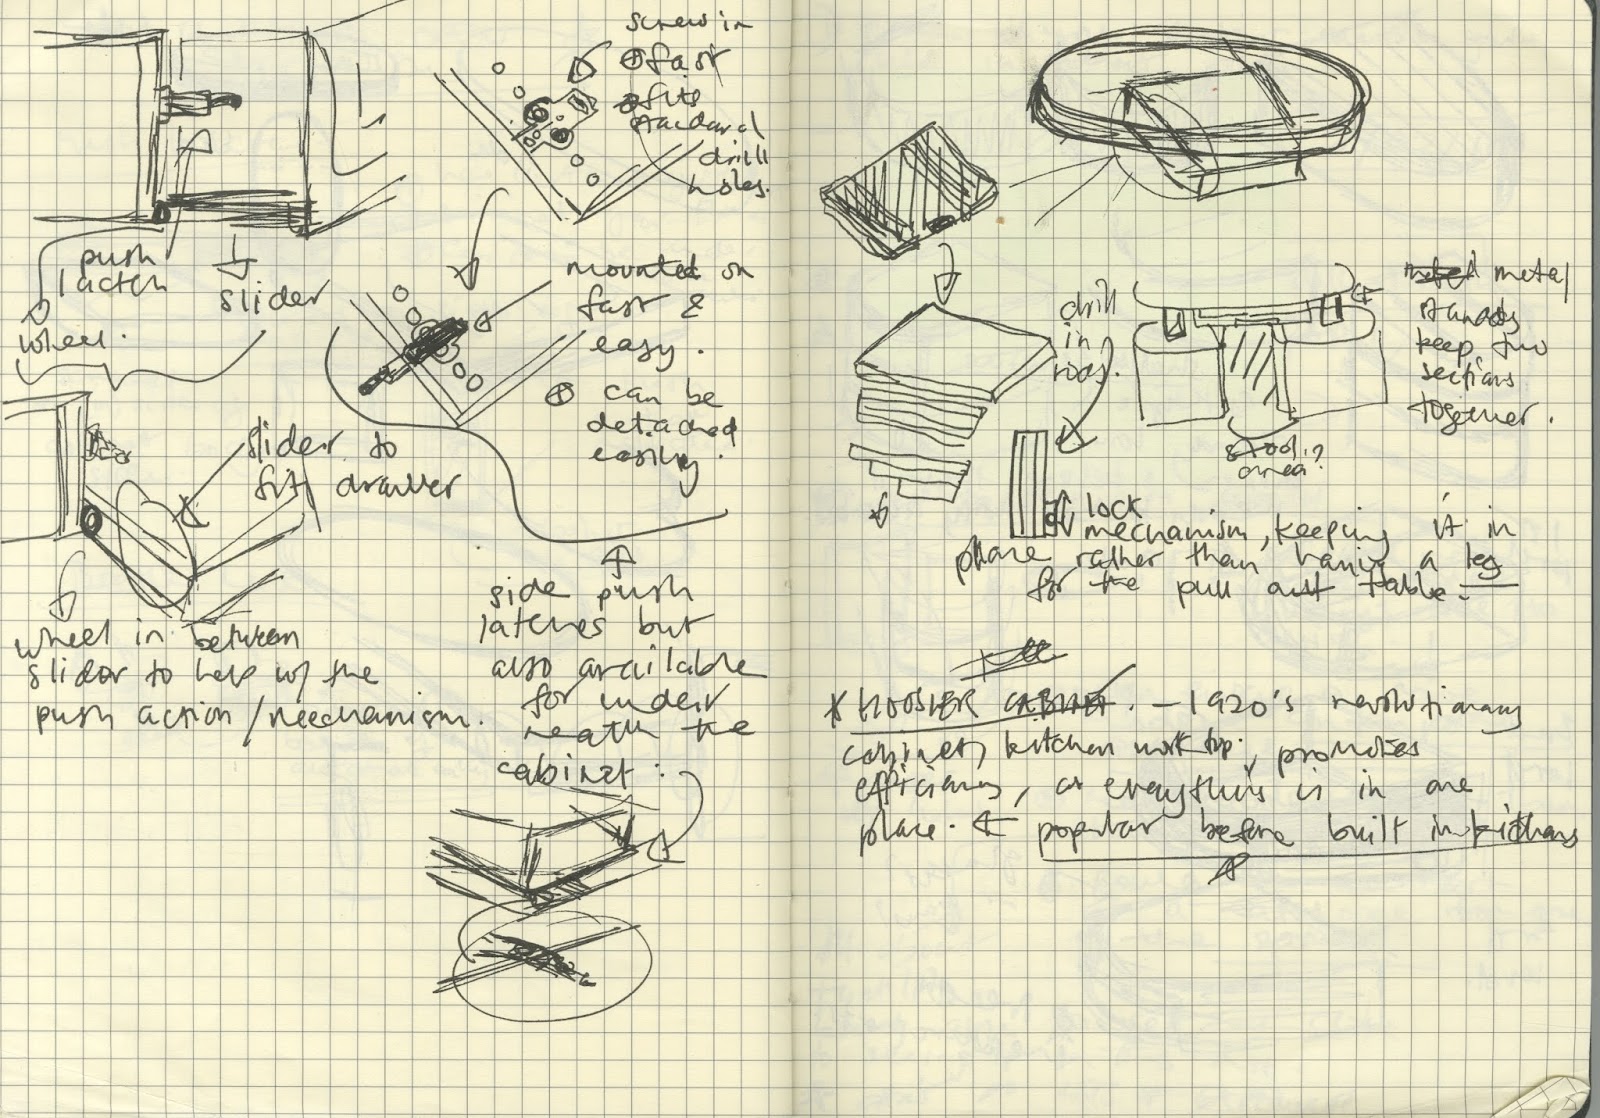 screw in
⊕ fast
fits
standard
drill
holes.
push
latch
slider
wheel.
mounted on
fast &
easy.
⊕ can be
detached
easily.
slider to
fit drawer
wheel in between
slider to help w/ the
push action/mechanism.
side push
latches but
also available
for under
neath the
cabinet:
drill
in
rods.
metal
stands
keep two
sections
together.
stool
area?
lock
mechanism, keeping it in
place rather than having a leg
for the pull out table.
* HOOSIER CABINET. – 1920's revolutionary
cabinet, kitchen work top, promotes
efficiency, as everything is in one
place. ← popular before built in kitchens